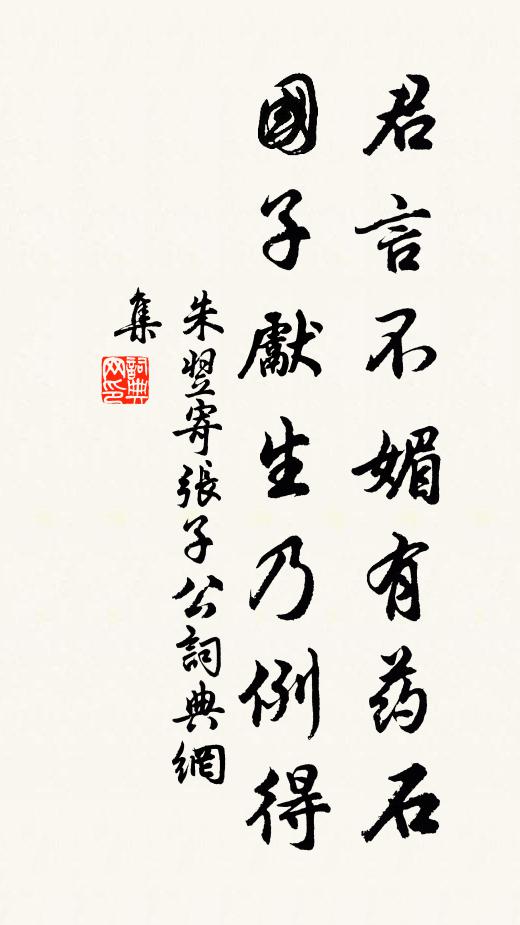 君言不媚有药石
國子獻生乃例得
朱翌寄張子公詞典網
集
詞典
网印